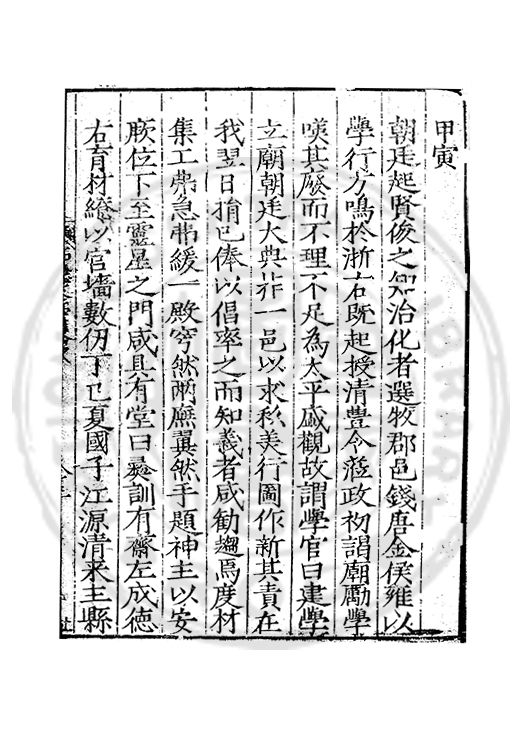 甲寅
朝廷起賢俊之知治化者選牧郡邑錢唐金侯雍以
學行方鳴於浙右旣起授清豊令蒞政初謁廟勵學
嘆其廢而不理不足為太平盛觀故謂學官曰建學
立廟朝廷大典非一邑以求私美行圖作新其責在
我翌日捐已俸以倡率之而知義者咸勸趨焉度材
集工弗急弗緩一殿穹然兩廡翼然手題神主以安
厥位下至靈星之門咸具有堂曰彞訓有齋左成德
右育材繚以宫墻數仞丁巳夏國子江源清来主縣